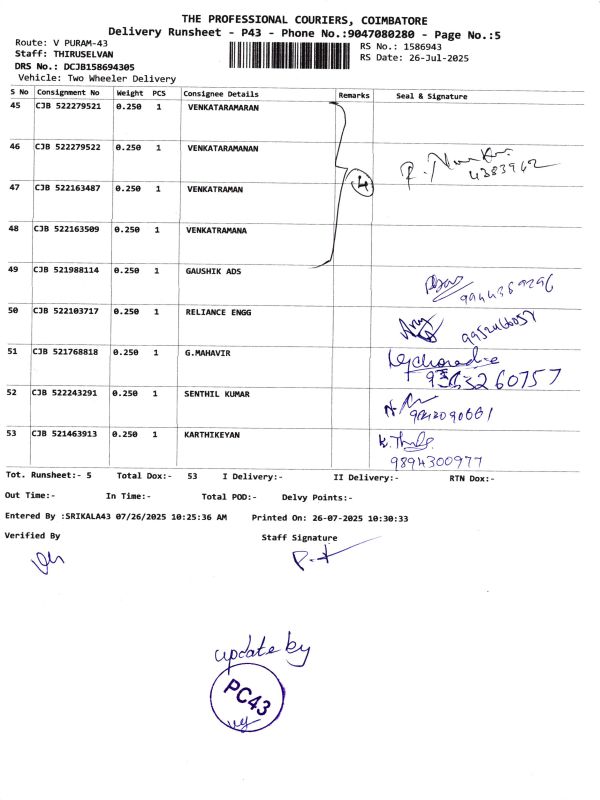 THE PROFESSIONAL COURIERS, COIMBATORE
Delivery Runsheet - P43 - Phone No.:9047080280 - Page No.:5
Route: V PURAM-43
RS No.: 1586943
Staff: THIRUSELVAN
RS Date: 26-Jul-2025
DRS No.: DCJB158694305
Vehicle: Two Wheeler Delivery
S No Consignment No Weight PCS Consignee Details Remarks Seal & Signature
45 CJB 522279521 0.250 1 VENKATARAMARAN
46 CJB 522279522 0.250 1 VENKATARAMANAN
4383962
47 CJB 522163487 0.250 1 VENKATRAMAN
4
48 CJB 522163509 0.250 1 VENKATRAMANA
49 CJB 521988114 0.250 1 GAUSHIK ADS
9944369296
50 CJB 522103717 0.250 1 RELIANCE ENGG
9952466057
51 CJB 521768818 0.250 1 G.MAHAVIR
9363260757
52 CJB 522243291 0.250 1 SENTHIL KUMAR
53 CJB 521463913 0.250 1 KARTHIKEYAN
9894300977
Tot. Runsheet:- 5 Total Dox:- 53 I Delivery:- II Delivery:- RTN Dox:-
Out Time:- In Time:- Total POD:- Delvy Points:-
Entered By :SRIKALA43 07/26/2025 10:25:36 AM Printed On: 26-07-2025 10:30:33
Verified By Staff Signature
update by
PC43